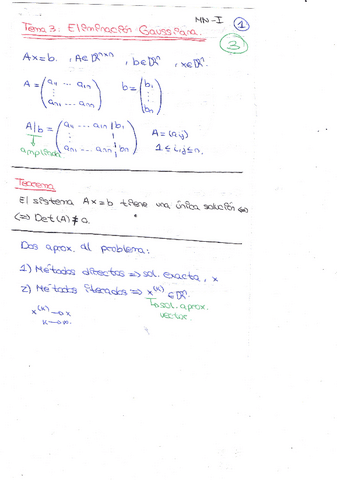 MN-I 1
Tema 3. Eliminación Gaussiana. 3
Ax=b. , A∈ℝⁿˣⁿ, b∈ℝⁿ, x∈ℝⁿ.
A = (a₁₁ ... a₁ₙ ⋮ aₙ₁ ... aₙₙ) b = (b₁ ⋮ bₙ)
A|b = (a₁₁ ... a₁ₙ | b₁ ⋮ aₙ₁ ... aₙₙ | bₙ) A = (aᵢⱼ)
ampliada 1 ≤ i,j ≤ n.
Teorema
El sistema Ax=b tiene una única solución ⇔
⇔ Det(A) ≠ 0.
Dos aprox. al problema:
1) Métodos directos ⇒ sol. exacta, x
2) Métodos iterados ⇒ x⁽ᵏ⁾ ∈ ℝⁿ.
x⁽ᵏ⁾ → x sol. aprox.
k → ∞. vector.